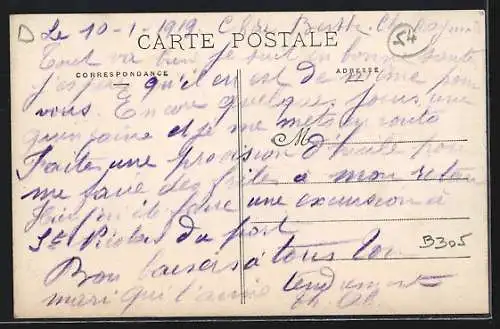 Le 10-1-1919. Chère Berthe
54
CARTE POSTALE
Tout va bien je suis en bonne santé
CORRESPONDANCE
ADRESSE
j'espère qu'il en est de même pour
vous. Encore quelque jours une
quinzaine et je me mets en route
M
Faite une provision d'huile pour
me faire des frites à mon retour
Hier j'ai été faire une excursion à
St Nicolas du port
B305
Bon baisers à tous Ton
mari qui t'aime tendrement